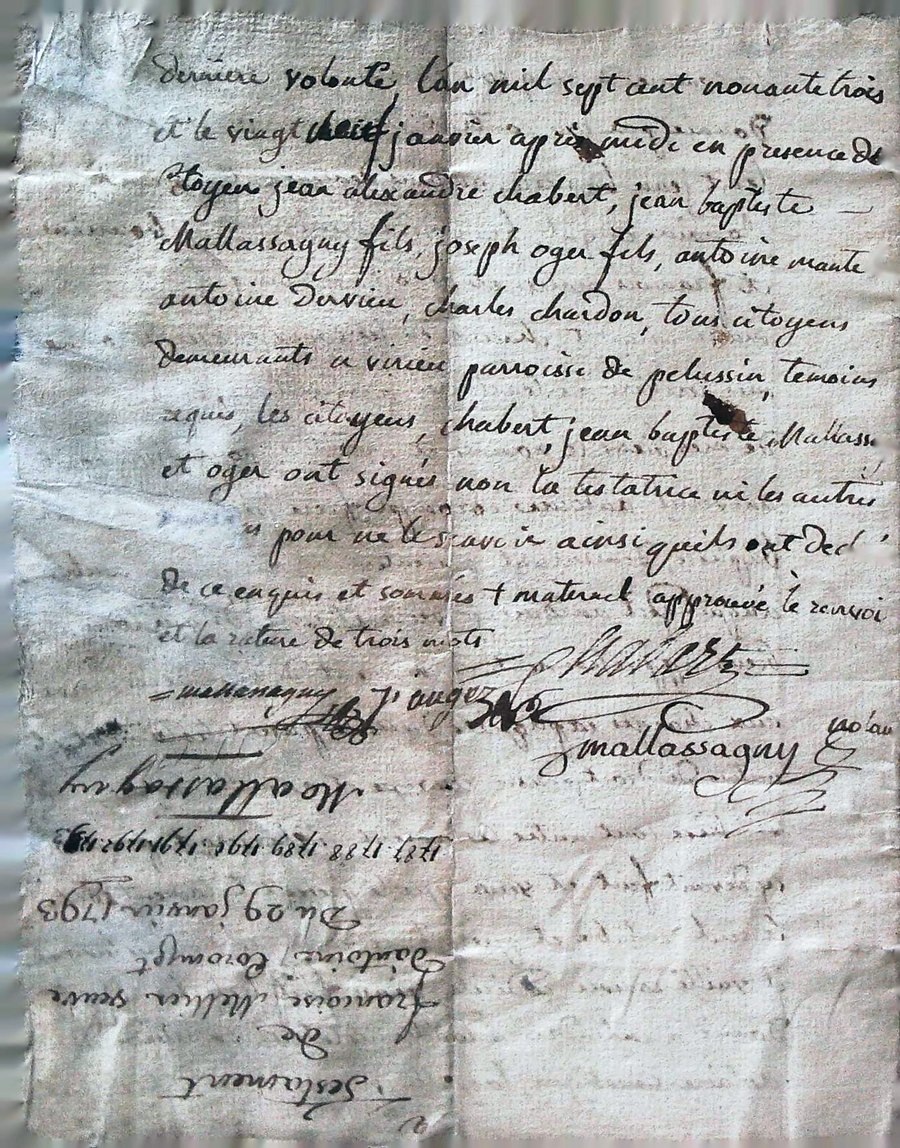 derniere volonté, l'an mil sept cent nonante trois
et le vingt neuf janvier après midi en presence de
citoyens jean alexandre chabert, jean baptiste
Mallassagny fils, joseph oger fils, antoine mante
antoine Dervieu, charles chardon, tous citoyens
demeurants a virieu parroisse de pelussin, temoins
requis, les citoyens, chabert, jean baptiste, Mallass
et oger ont signés non la testatrice ni les autres
pour ne le scavoir ainsi quils ont decl
de ce enquis et sommés + maternel approuvé le renvoi
et la rature de trois mots
chabert
mallassagny
mallassagny
Mallassagny
1787. 1788. 1789. 1791. 1792. 1793
Du 29 janvier 1793
Testament
de
francoise Mellier veuve
d'antoine Corompt